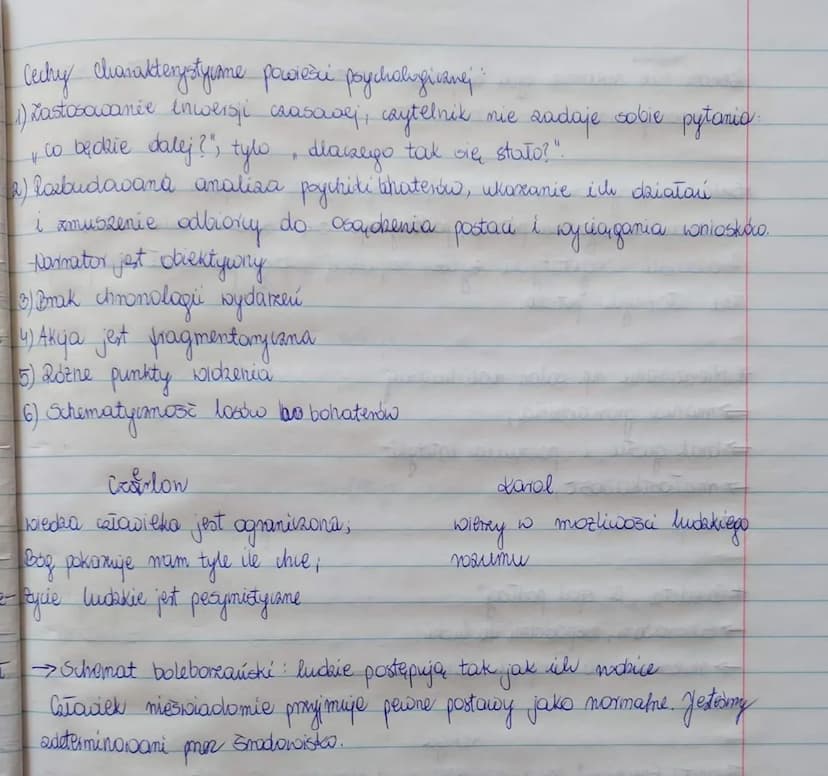 Cechy charakterystyczne powieści psychologicznej:
1) Zastosowanie inwersji czasowej, czytelnik nie zadaje sobie pytania
"co będzie dalej?", tylo "dlaczego tak się stało?".
2) Rozbudowana analiza psychiki bohaterów, ukazanie ich działań
i zmuszenie odbiorcy do osądzenia postaci i wyciągania wniosków.
Narrator jest obiektywny
3) Brak chronologii wydarzeń
4) Akcja jest fragmentaryczna
5) Różne punkty widzenia
6) Schematyczność losów bohaterów
Czerlon Karol
wiedza człowieka jest ograniczona; wierzy w możliwości ludzkiego
Bóg pokazuje nam tyle ile chce; rozumu
życie ludzkie jest pesymistyczne
→ Schemat boleborzański: ludzie postępują tak jak ich rodzice
Człowiek nieświadomie przyjmuje pewne postawy jako normalne. Jesteśmy
zdeterminowani przez środowisko.